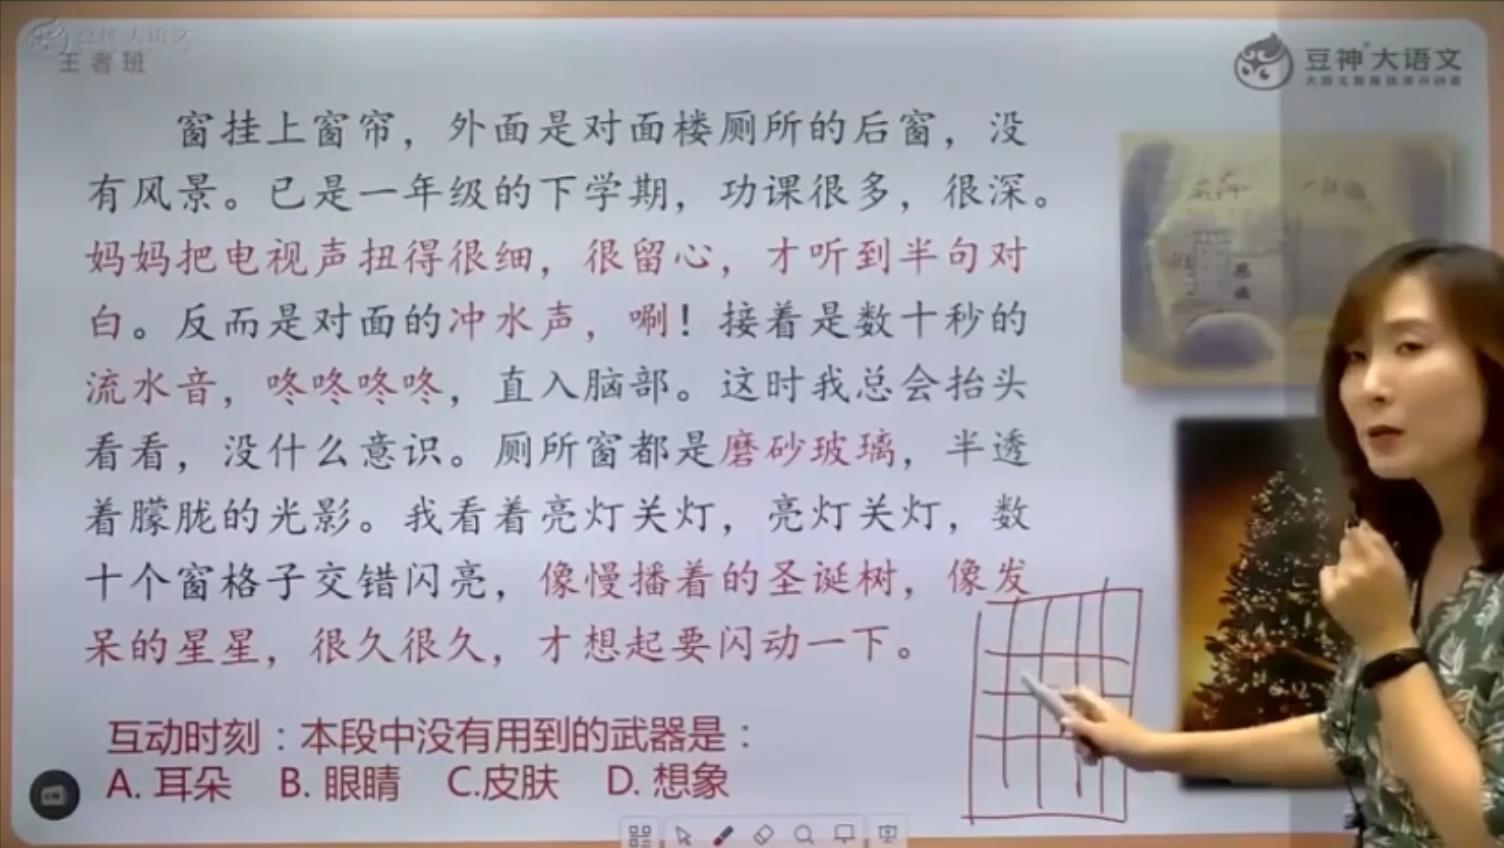 豆神大语文
王者班
豆神大语文
窗挂上窗帘，外面是对面楼厕所的后窗，没
有风景。已是一年级的下学期，功课很多，很深。
妈妈把电视声扭得很细，很留心，才听到半句对
白。反而是对面的冲水声，唰！接着是数十秒的
流水音，咚咚咚咚，直入脑部。这时我总会抬头
看看，没什么意识。厕所窗都是磨砂玻璃，半透
着朦胧的光影。我看着亮灯关灯，亮灯关灯，数
十个窗格子交错闪亮，像慢播着的圣诞树，像发
呆的星星，很久很久，才想起要闪动一下。
互动时刻：本段中没有用到的武器是：
A. 耳朵 B. 眼睛 C.皮肤 D. 想象